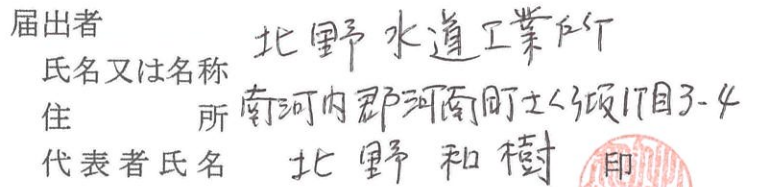 届出者
氏名又は名称 北野水道工業所
住所 南河内郡河南町さくら坂1丁目3-4
代表者氏名 北野和樹 印